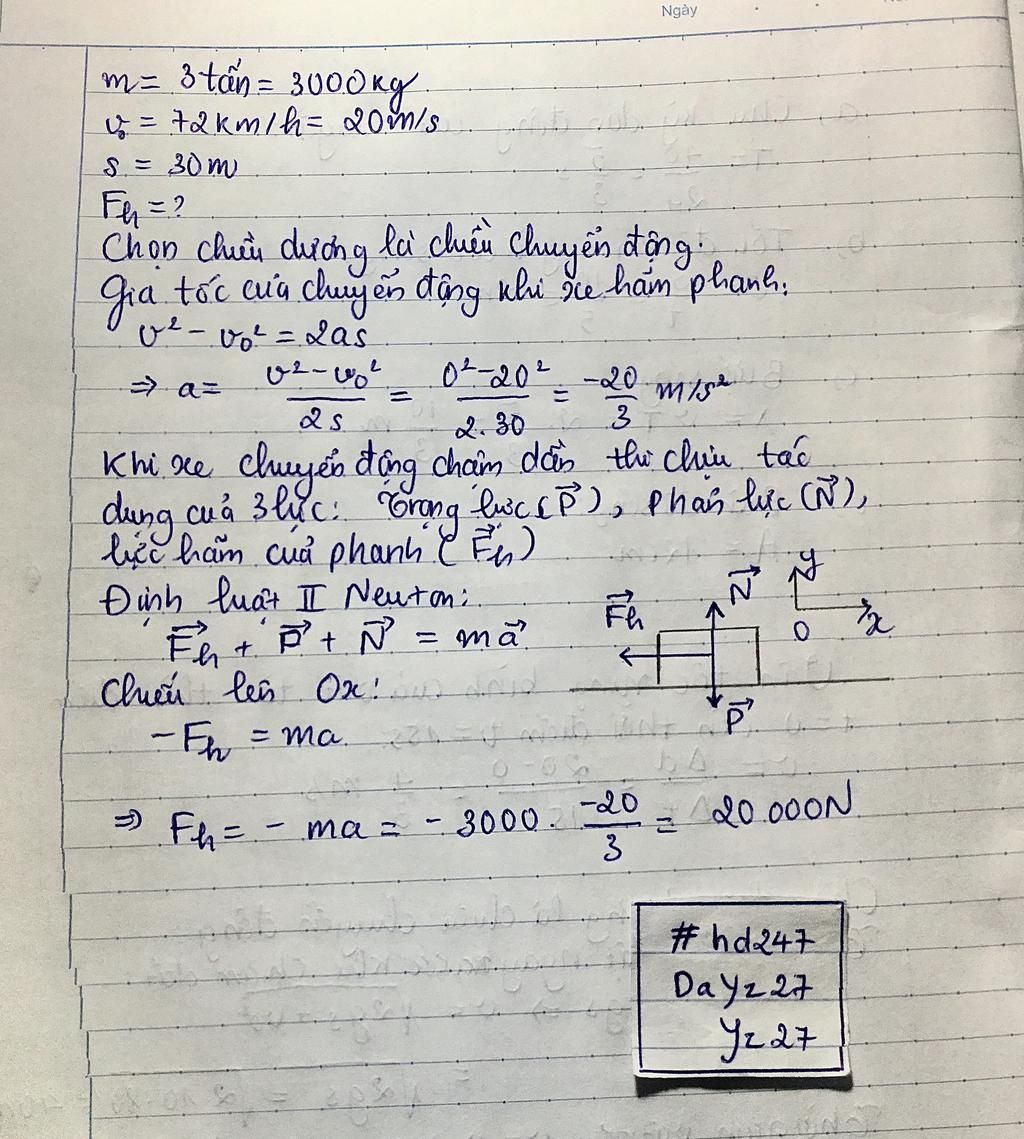 Ngày
m = 3 tấn = 3000kg
v₀ = 72km/h = 20m/s
s = 30m
Fh = ?
Chọn chiều dương là chiều chuyển động.
Gia tốc của chuyển động khi xe hãm phanh:
v² - v₀² = 2as
⇒ a = (v² - v₀²)/(2s) = (0² - 20²)/(2.30) = -20/3 m/s²
Khi xe chuyển động chậm dần thì chịu tác
dụng của 3 lực: Trọng lực (P⃗), phản lực (N⃗),
lực hãm của phanh (F⃗h)
Định luật II Neuton:
F⃗h + P⃗ + N⃗ = ma⃗
Chiếu lên Ox:
-Fh = ma
F⃗h
N⃗
P⃗
y
O
x
⇒ Fh = - ma = - 3000 . -20/3 = 20.000N
# hd247
DaYz27
Yz27